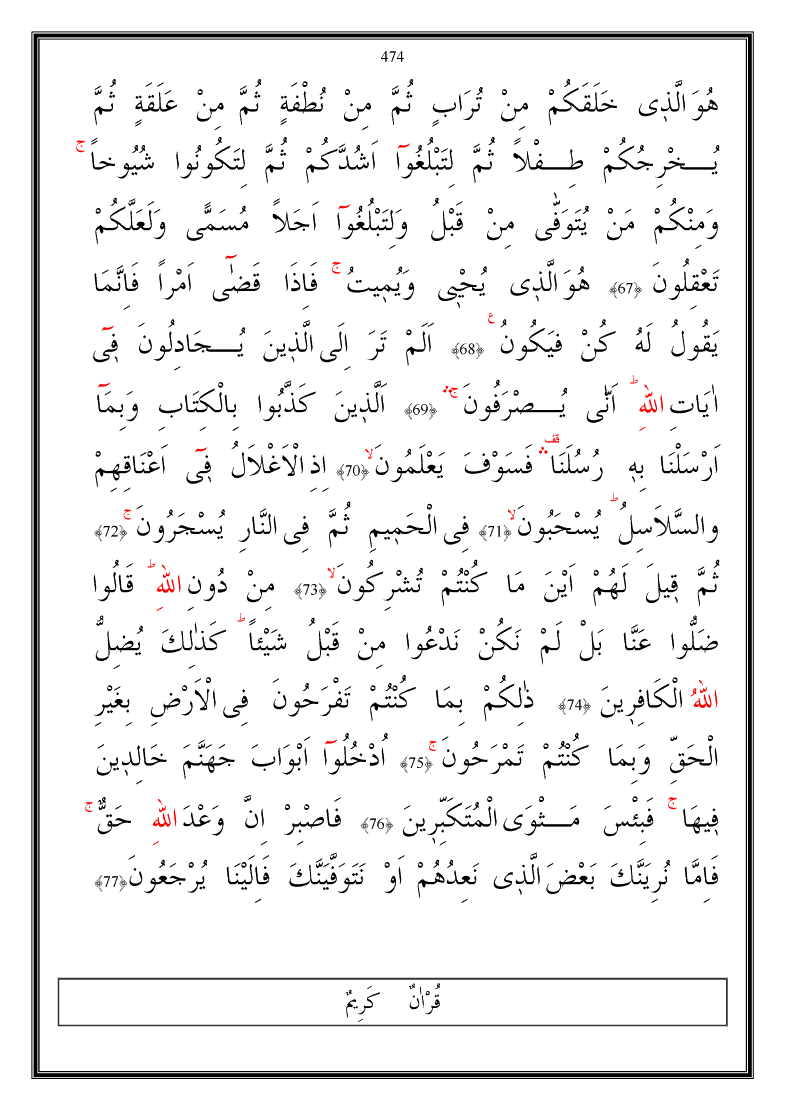 474
هُوَ الَّذ۪ى خَلَقَكُمْ مِنْ تُرَابٍ ثُمَّ مِنْ نُطْفَةٍ ثُمَّ مِنْ عَلَقَةٍ ثُمَّ
يُـــخْرِجُكُمْ طِـــفْلاً ثُمَّ لِتَبْلُغُوٓا اَشُدَّكُمْ ثُمَّ لِتَكُونُوا شُيُوخاًۚ
وَمِنْكُمْ مَنْ يُتَوَفّٰى مِنْ قَبْلُ وَلِتَبْلُغُوٓا اَجَلاً مُسَمًّى وَلَعَلَّكُمْ
تَعْقِلُونَ ﴿67﴾ هُوَ الَّذ۪ى يُحْي۪ى وَيُم۪يتُۚ فَاِذَا قَضٰٓى اَمْراً فَاِنَّمَا
يَقُولُ لَهُ كُنْ فَيَكُونُ ࣖ ﴿68﴾ اَلَمْ تَرَ اِلَى الَّذ۪ينَ يُـــجَادِلُونَ ف۪ٓى
اٰيَاتِ اللّٰهِؕ اَنّٰى يُـــصْرَفُونَۚۛ ﴿69﴾ اَلَّذ۪ينَ كَذَّبُوا بِالْكِتَابِ وَبِمَٓا
اَرْسَلْنَا بِه۪ رُسُلَنَاࣞۛ فَسَوْفَ يَعْلَمُونَۙ ﴿70﴾ اِذِ الْاَغْلَالُ ف۪ٓى اَعْنَاقِهِمْ
والسَّلَاسِلُؕ يُسْحَبُونَۙ ﴿71﴾ فِى الْحَم۪يمِ ثُمَّ فِى النَّارِ يُسْجَرُونَۚ ﴿72﴾
ثُمَّ ق۪يلَ لَهُمْ اَيْنَ مَا كُنْتُمْ تُشْرِكُونَۙ ﴿73﴾ مِنْ دُونِ اللّٰهِؕ قَالُوا
ضَلُّوا عَنَّا بَلْ لَمْ نَكُنْ نَدْعُوا مِنْ قَبْلُ شَيْئاًؕ كَذٰلِكَ يُضِلُّ
اللّٰهُ الْكَافِر۪ينَ ﴿74﴾ ذٰلِكُمْ بِمَا كُنْتُمْ تَفْرَحُونَ فِى الْاَرْضِ بِغَيْرِ
الْحَقِّ وَبِمَا كُنْتُمْ تَمْرَحُونَۚ ﴿75﴾ اُدْخُلُوٓا اَبْوَابَ جَهَنَّمَ خَالِد۪ينَ
ف۪يهَاۚ فَبِئْسَ مَـــثْوَى الْمُتَكَبِّر۪ينَ ﴿76﴾ فَاصْبِرْ اِنَّ وَعْدَ اللّٰهِ حَقٌّۚ
فَاِمَّا نُرِيَنَّكَ بَعْضَ الَّذ۪ى نَعِدُهُمْ اَوْ نَتَوَفَّيَنَّكَ فَاِلَيْنَا يُرْجَعُونَ ﴿77﴾
قُرْاٰنٌ كَرِيمٌ